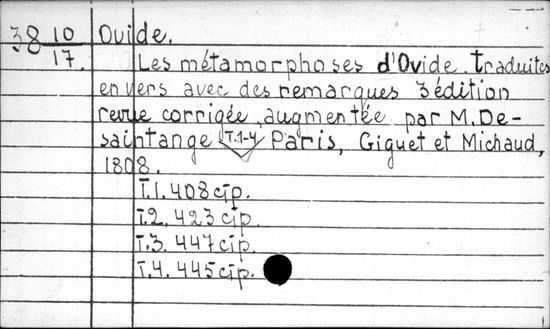 38 10/17. Ovide.
Les métamorphoses d'Ovide. Traduites
en vers avec des remarques 3 édition
revue corrigée, augmentée par M. De-
saintange T.1-4 Paris, Giguet et Michaud,
1808.
T.1. 408 стр.
T.2. 423 стр.
T.3. 447 стр.
T.4. 445 стр.